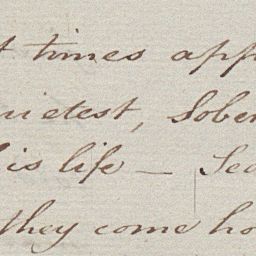 times app
uietest, Sober
is life — Sea
they come ho